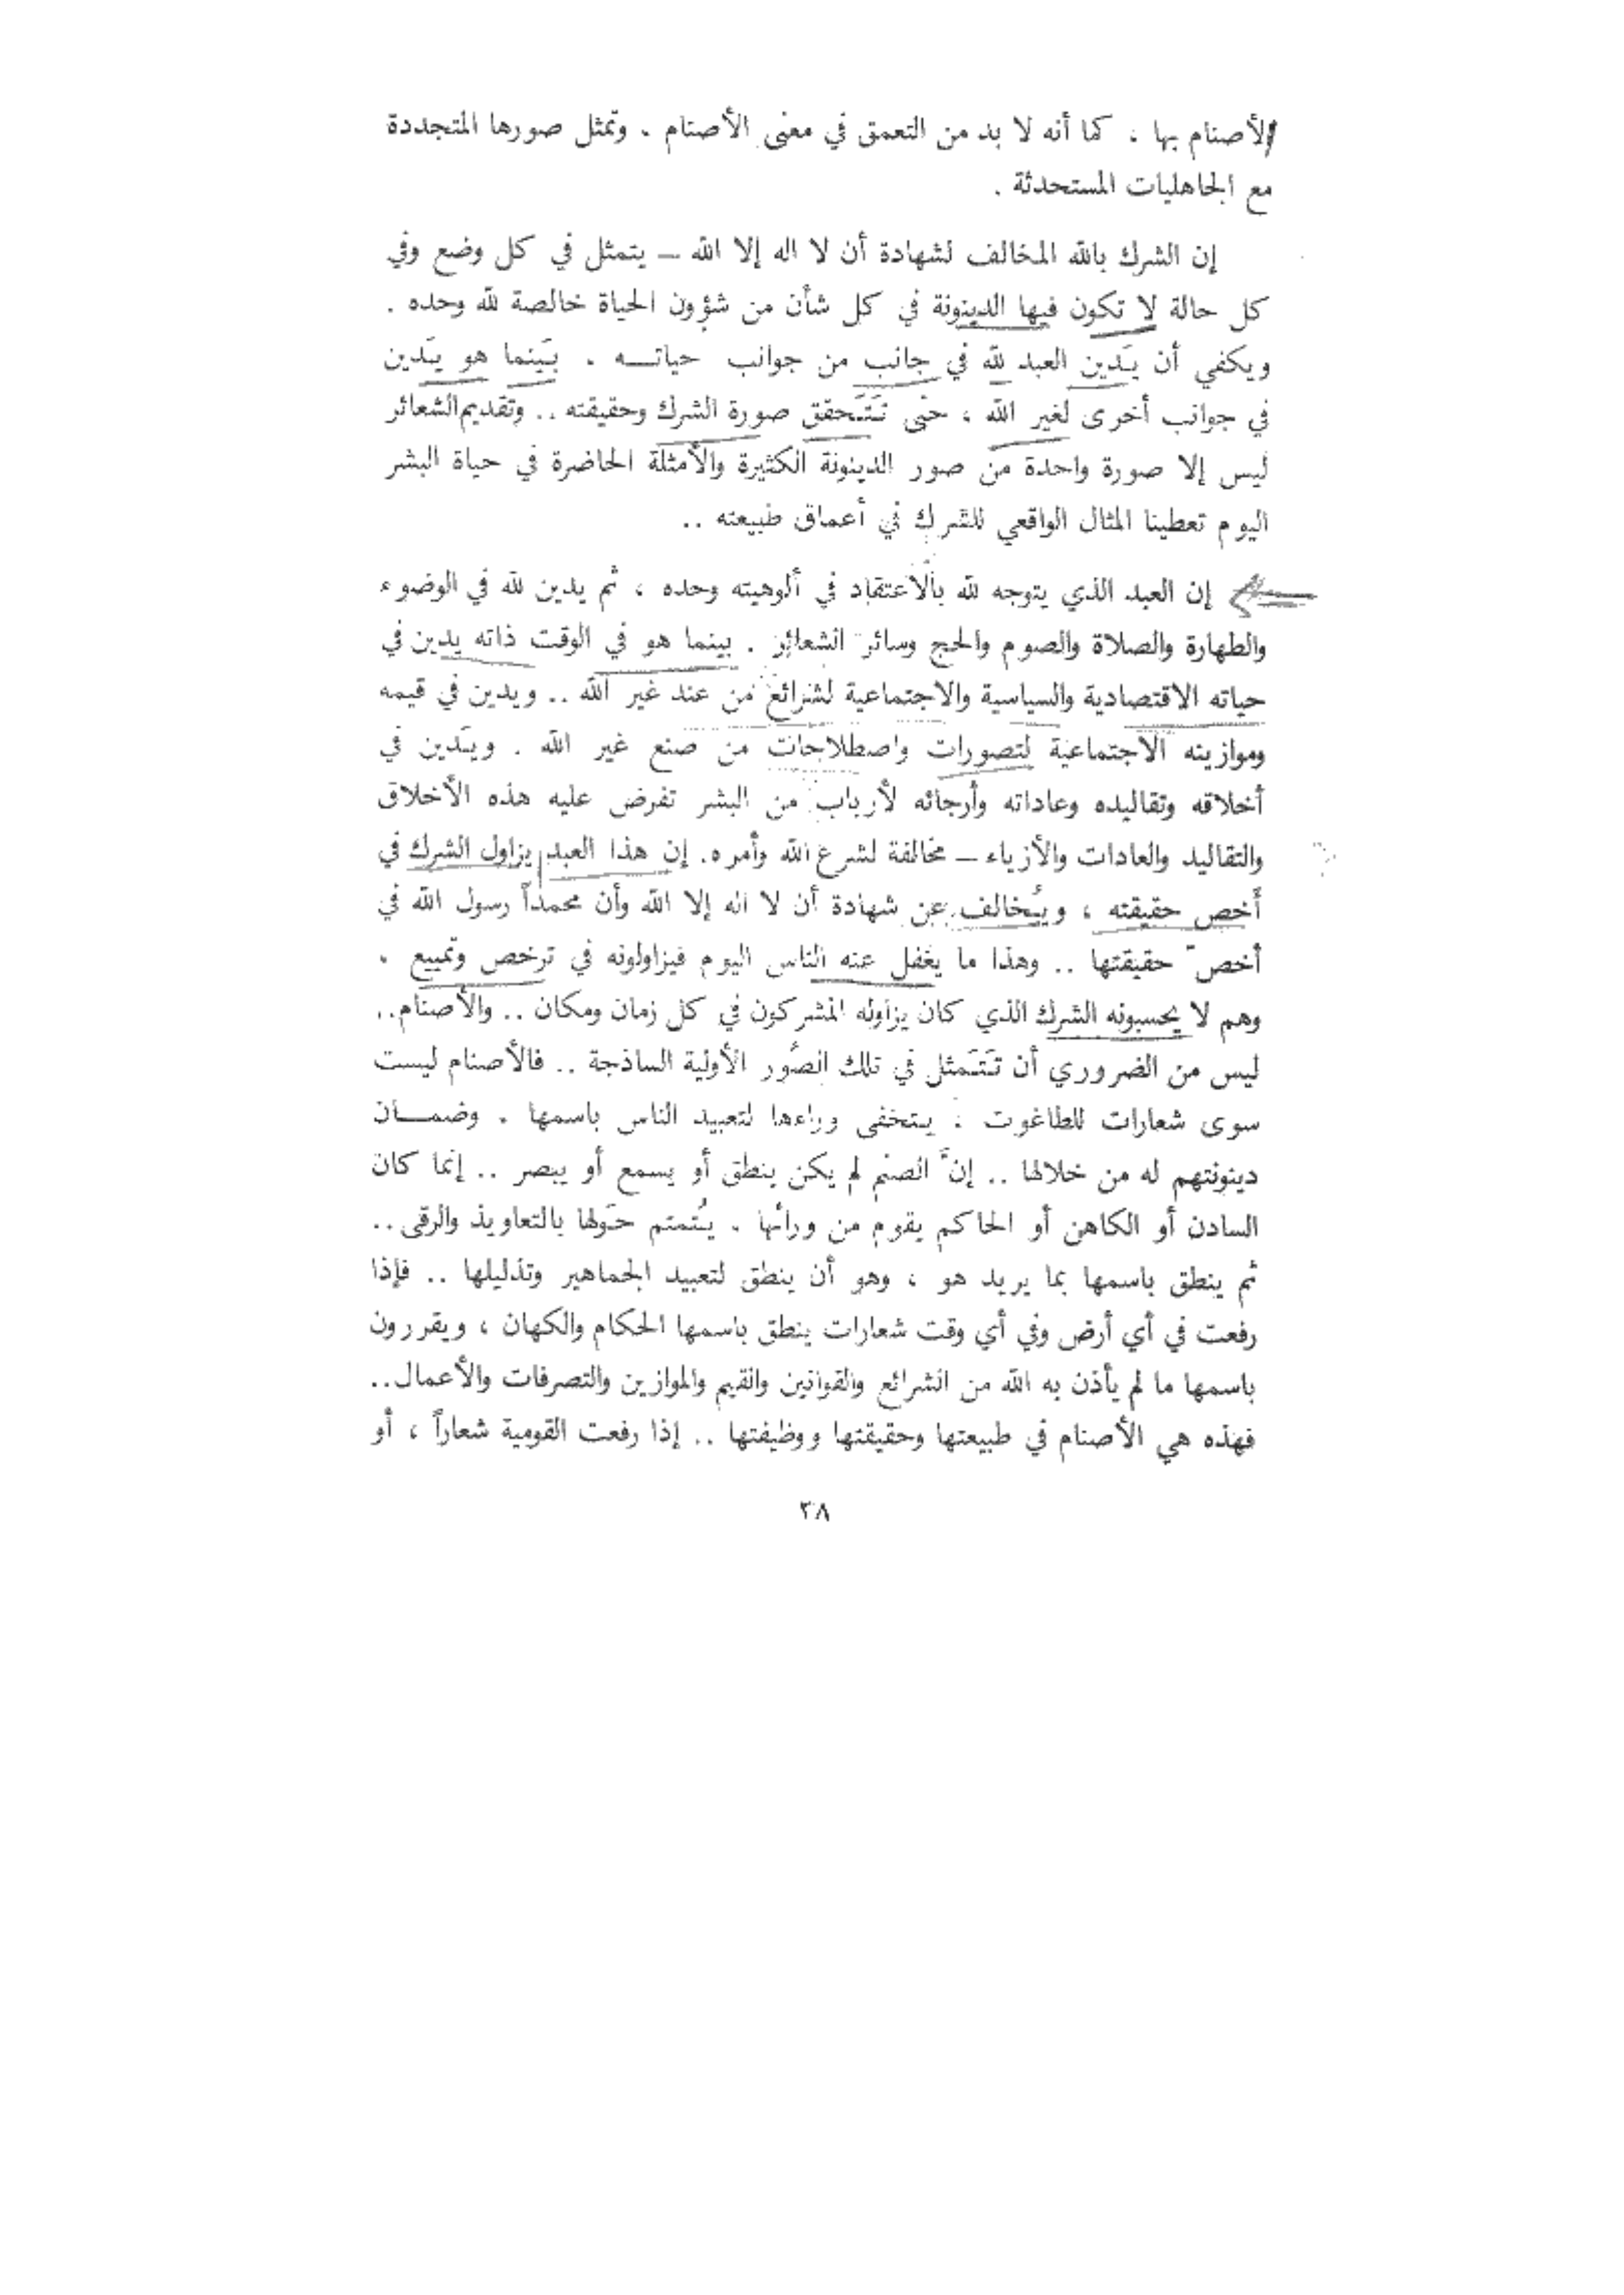 الأصنام بها ، كما أنه لا بد من التعمق في معنى الأصنام . وتمثل صورها المتجددة
مع الجاهليات المستحدثة .
إن الشرك بالله المخالف لشهادة أن لا اله إلا الله – يتمثل في كل وضع وفي
كل حالة لا تكون فيها الدينونة في كل شأن من شؤون الحياة خالصة لله وحده .
ويكفي أن يَدين العبد لله في جانب من جوانب حياتــه . بَينما هو يَدين
في جوانب أخرى لغير الله ، حتى تَتَحقق صورة الشرك وحقيقته .. وتقديم الشعائر
ليس إلا صورة واحدة من صور الدينونة الكثيرة والأمثلة الحاضرة في حياة البشر
اليوم تعطينا المثال الواقعي للشرك في أعماق طبيعته ..
إن العبد الذي يتوجه لله بالاعتقاد في ألوهيته وحده ، ثم يدين لله في الوضوء
والطهارة والصلاة والصوم والحج وسائر الشعائر . بينما هو في الوقت ذاته يدين في
حياته الاقتصادية والسياسية والاجتماعية لشرائع من عند غير الله .. ويدين في قيمه
وموازينه الاجتماعية لتصورات واصطلاحات من صنع غير الله . ويَدين في
أخلاقه وتقاليده وعاداته وأرجائه لأرباب من البشر تفرض عليه هذه الأخلاق
والتقاليد والعادات والأزياء – مخالفة لشرع الله وأمره. إن هذا العبد يزاول الشرك في
أخص حقيقته ، ويُخالف عن شهادة أن لا اله إلا الله وأن محمداً رسول الله في
أخصّ حقيقتها .. وهذا ما يغفل عنه الناس اليوم فيزاولونه في ترخص وتمييع .
وهم لا يحسبونه الشرك الذي كان يزاوله المشركون في كل زمان ومكان .. والأصنام..
ليس من الضروري أن تَتَمثل في تلك الصُور الأولية الساذجة .. فالأصنام ليست
سوى شعارات للطاغوت : يتخفى وراءها لتعبيد الناس باسمها . وضمــان
دينونتهم له من خلالها .. إنّ الصنم لم يكن ينطق أو يسمع أو يبصر .. إنما كان
السادن أو الكاهن أو الحاكم يقوم من ورائها . يُتمتم حَولها بالتعاويذ والرقى..
ثم ينطق باسمها بما يريد هو ، وهو أن ينطق لتعبيد الجماهير وتذليلها .. فإذا
رفعت في أي أرض وفي أي وقت شعارات ينطق باسمها الحكام والكهان ، ويقررون
باسمها ما لم يأذن به الله من الشرائع والقوانين والقيم والموازين والتصرفات والأعمال..
فهذه هي الأصنام في طبيعتها وحقيقتها ووظيفتها .. إذا رفعت القومية شعاراً ، أو
٣٨